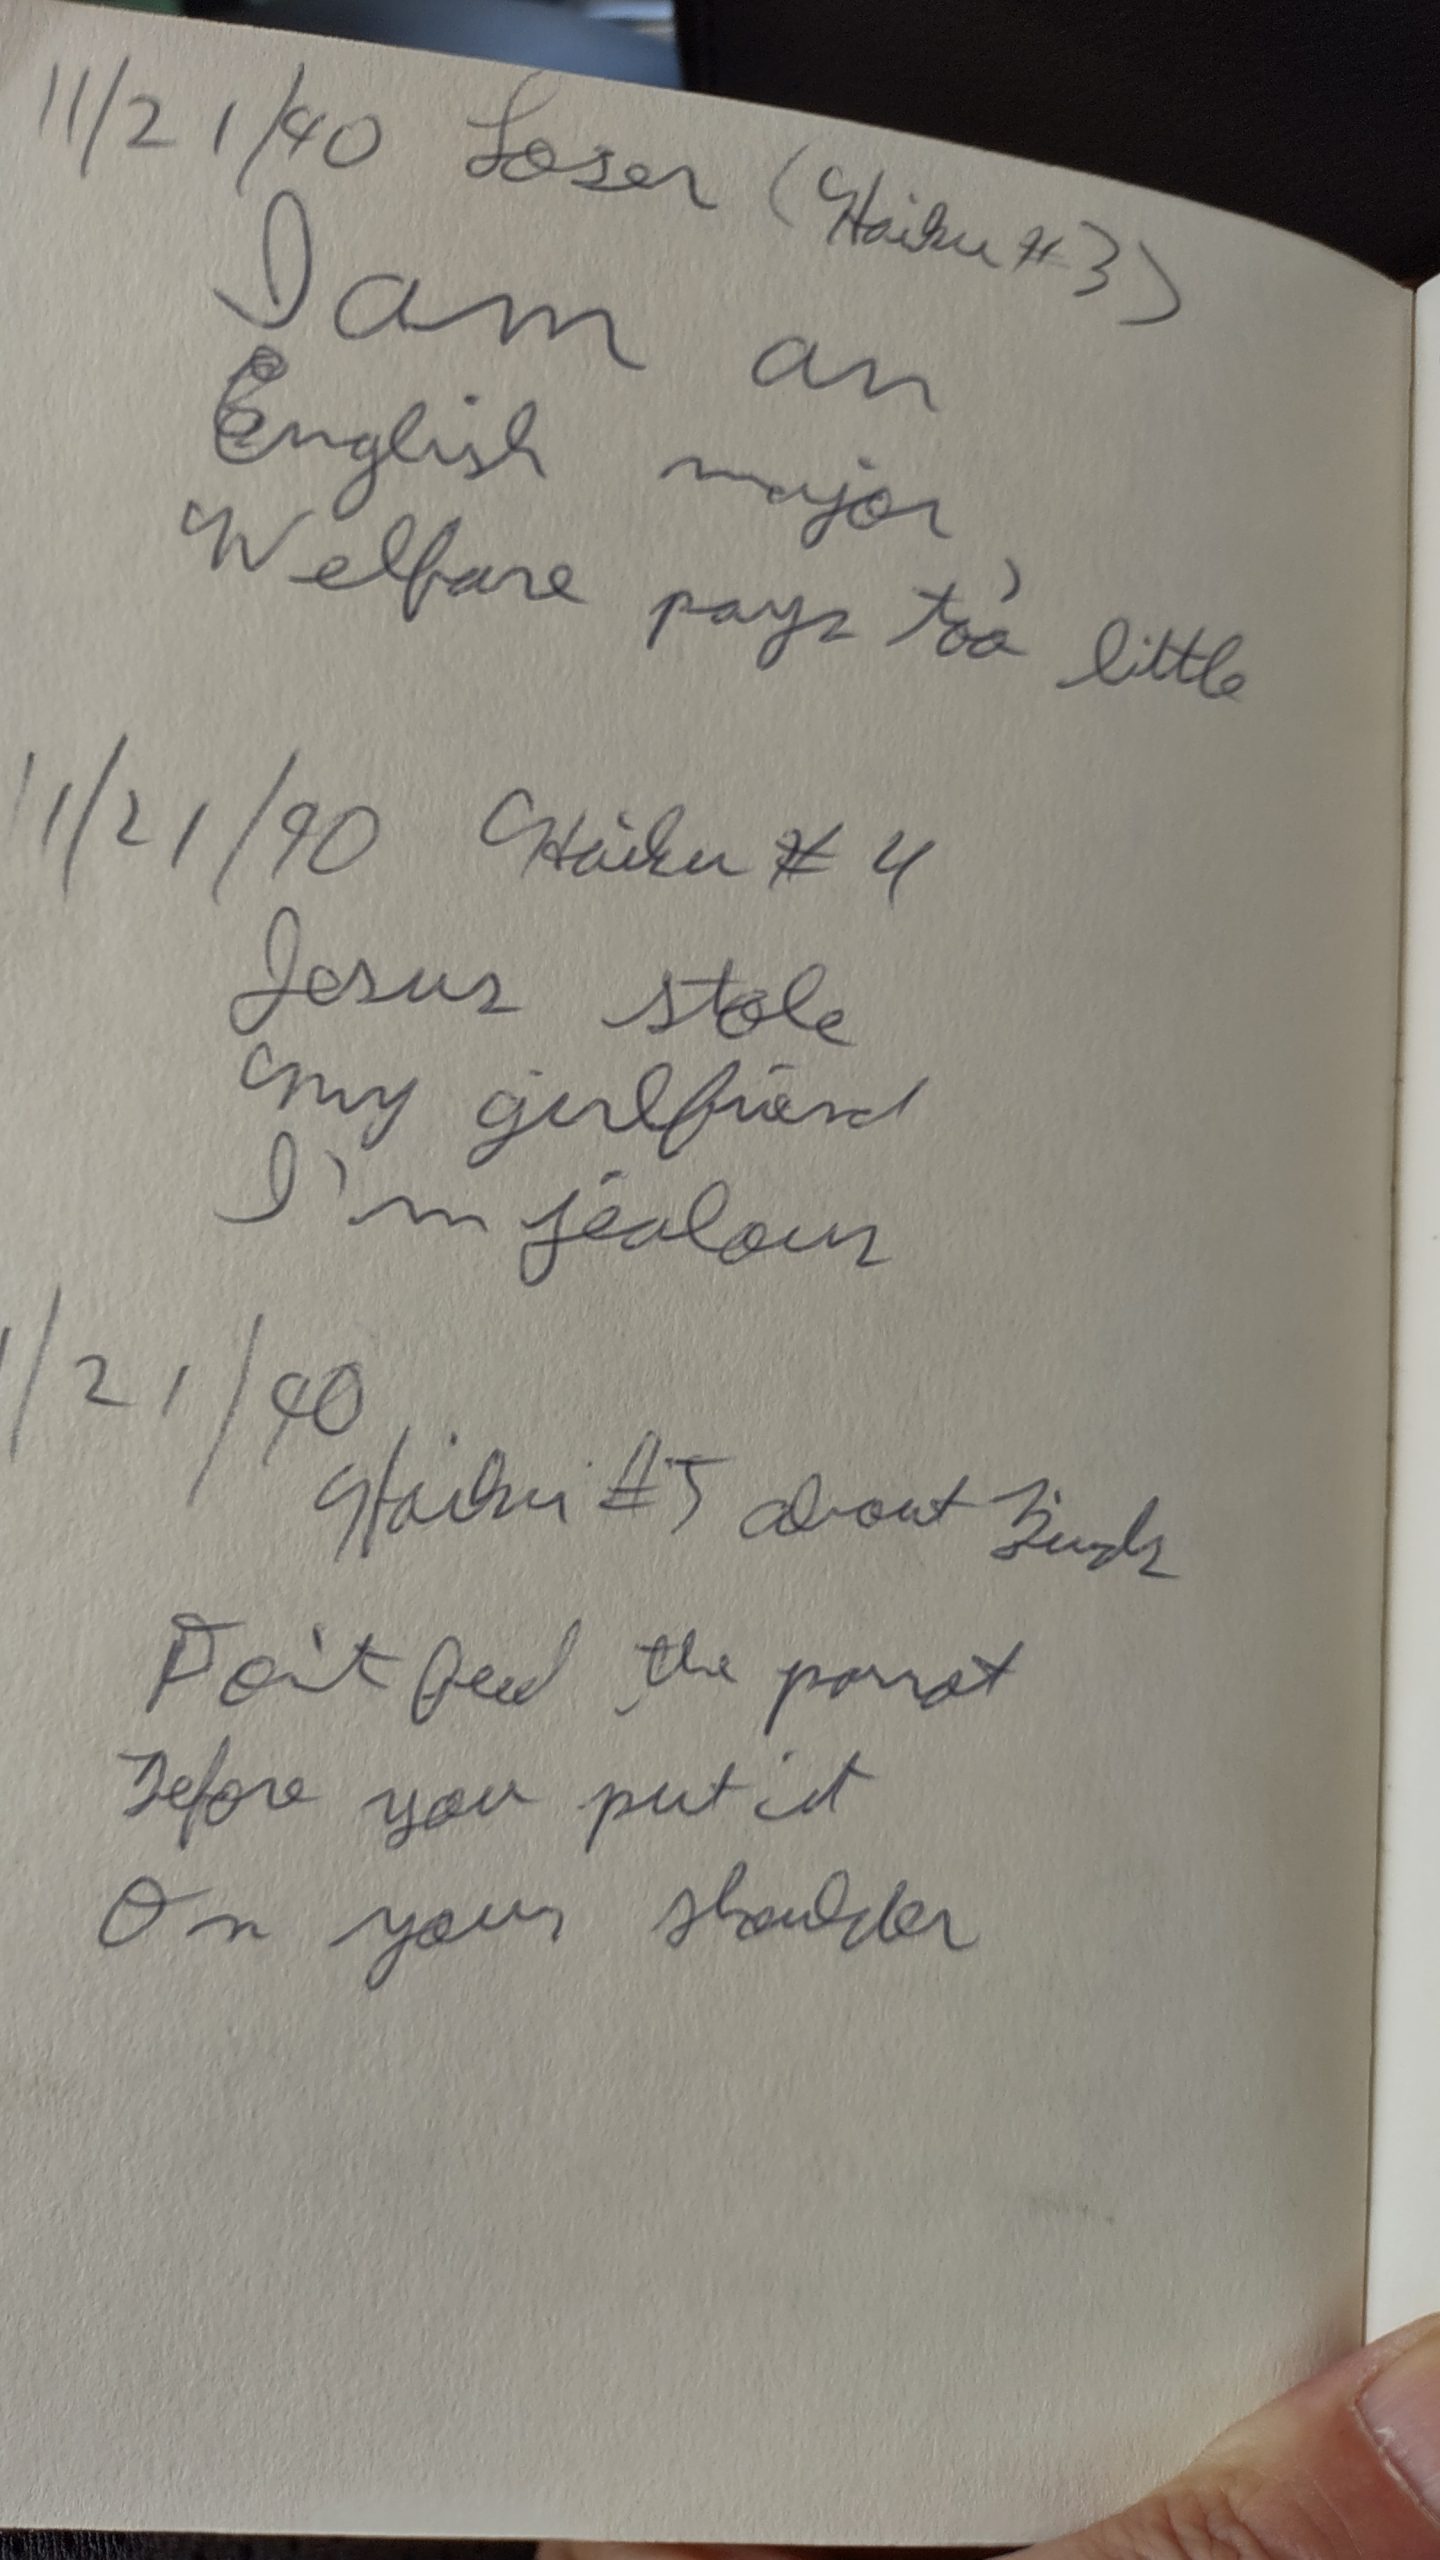 11/21/90 Loser (Haiku #3)
I am an
English major
Welfare pays too little
11/21/90 Haiku #4
Jesus stole
my girlfriend
I'm jealous
1/21/90
Haiku #5 about Birds
Don't feed the parrot
Before you put it
On your shoulder